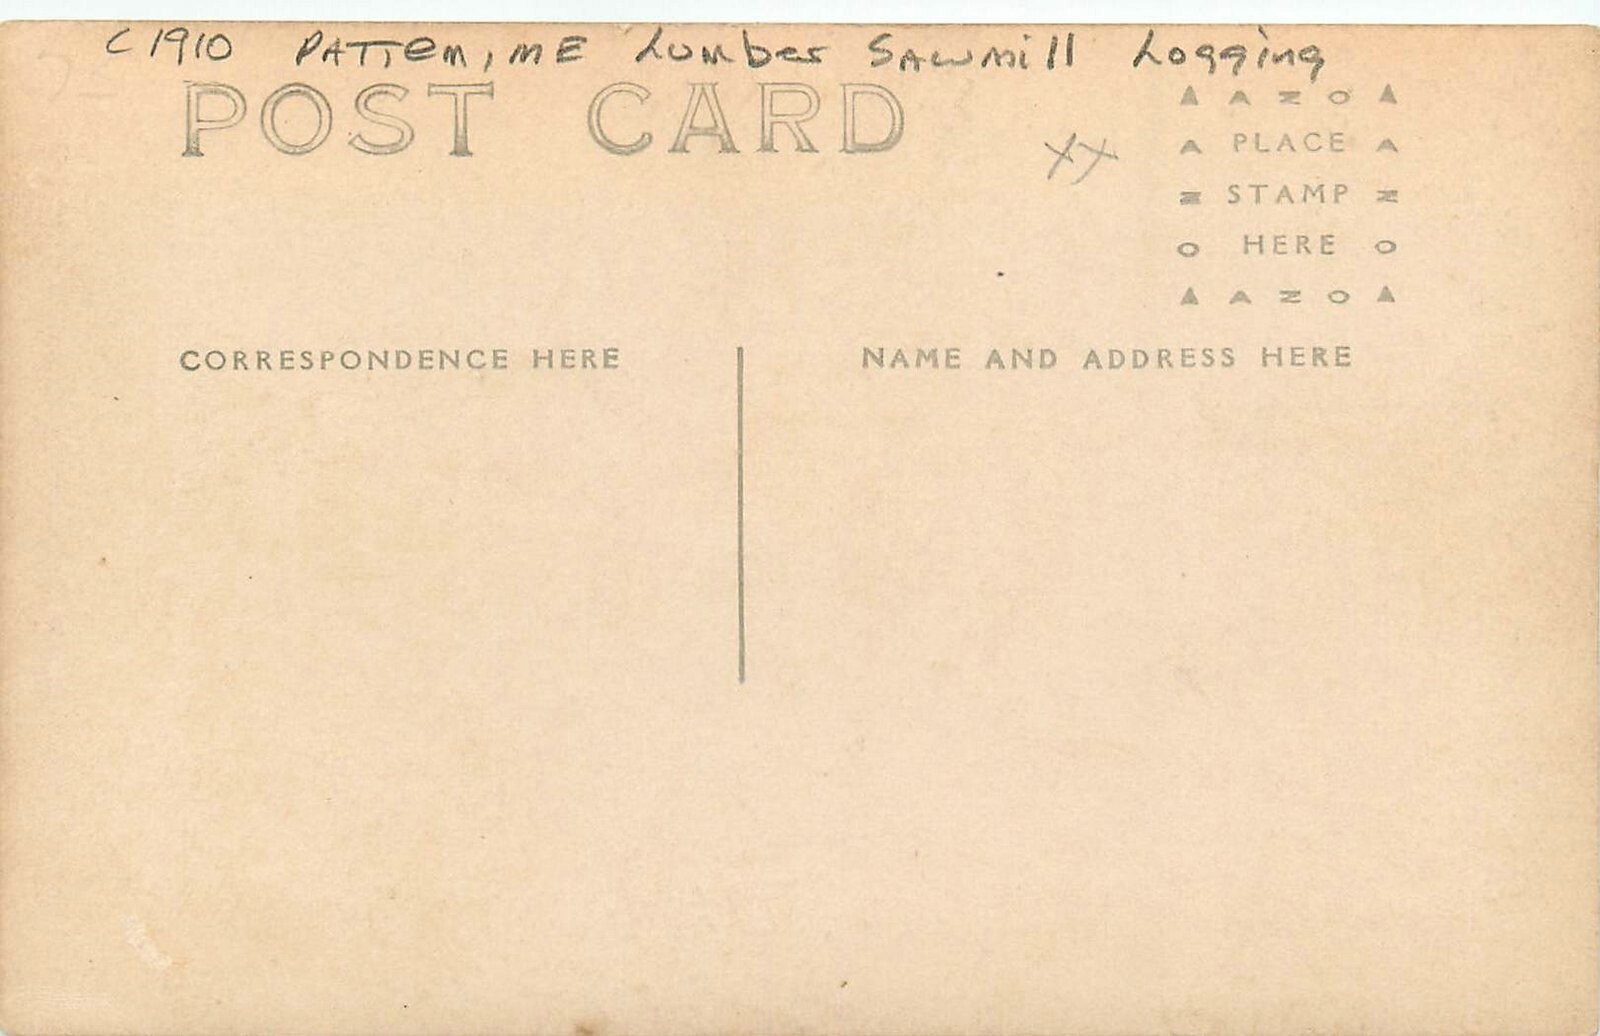 c 1910 PATTEN, ME Lumber Sawmill Logging
POST CARD
A Z O
XX
A PLACE A
Z STAMP Z
O HERE O
A Z O
CORRESPONDENCE HERE
NAME AND ADDRESS HERE